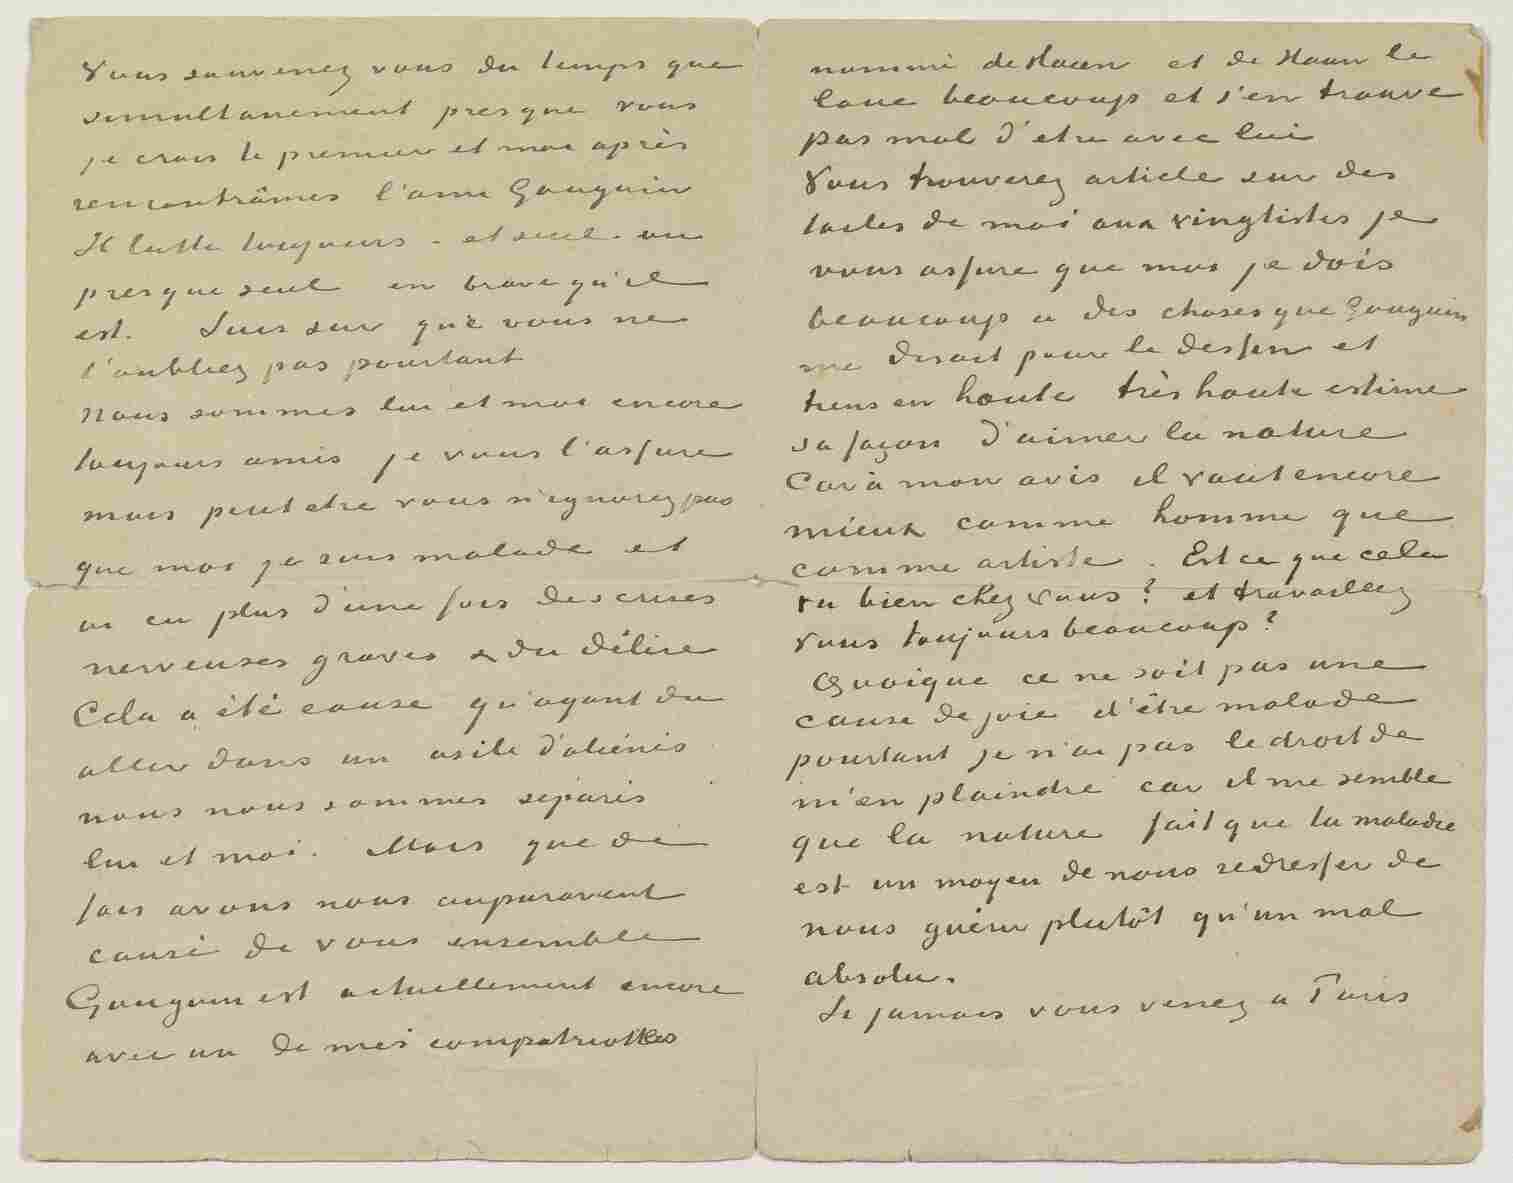 Vous souvenez vous du temps que
simultanement presque vous
je crois le premier et moi après
rencontrâmes l'ami Gauguin
Il lutte toujours – et seul ou
presque seul en brave qu'il
est. Suis sur que vous ne
l'oubliez pas pourtant
Nous sommes lui et moi encore
toujours amis je vous l'assure
mais peut etre vous n'ignorez pas
que moi je suis malade et
ai eu plus d'une fois des crises
nerveuses graves & du délire
Cela a été cause qu'ayant du
aller dans un asile d'aliénés
nous nous sommes séparés
lui et moi. Mais que de
fois avons nous auparavant
causé de vous ensemble
Gauguin est actuellement encore
avec un de mes compatriottes
nommé de Haan et de Haan le
loue beaucoup et s'en trouve
pas mal d'etre avec lui
Vous trouverez article sur des
toiles de moi aux vingtistes je
vous assure que moi je dois
beaucoup a des choses que Gauguin
me disait pour le dessin et
tiens en haute très haute estime
sa façon d'aimer la nature
Car à mon avis il vaut encore
mieux comme homme que
comme artiste. Est ce que cela
va bien chez vous? et travaillez
vous toujours beaucoup?
Quoique ce ne soit pas une
cause de joie d'être malade
pourtant je n'ai pas le droit de
m'en plaindre car il me semble
que la nature fait que la maladie
est un moyen de nous redresser de
nous guérir plutôt qu'un mal
absolu.
Si jamais vous venez a Paris